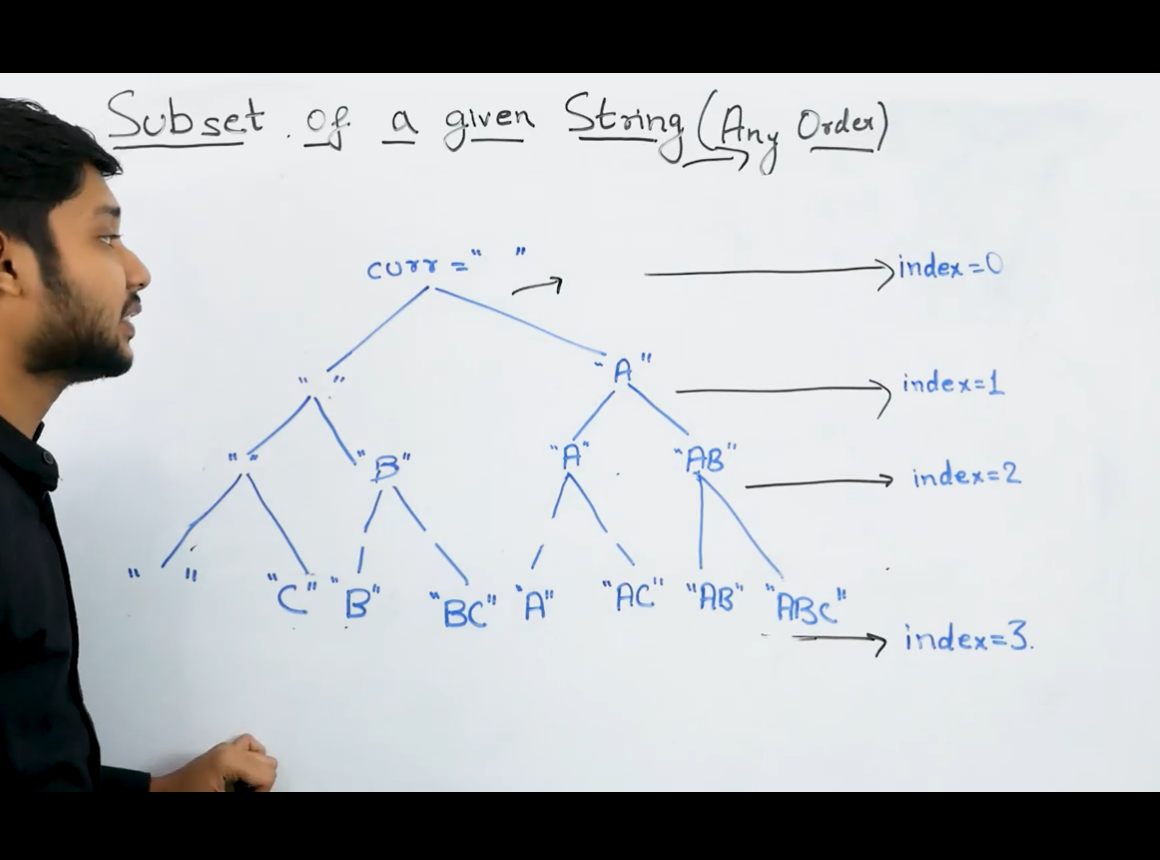 Subset of a given String (Any Order)
curr = " " index=0
" " "A" index=1
" " "B" "A" "AB" index=2
" " "C" "B" "BC" "A" "AC" "AB" "ABC"
index=3.